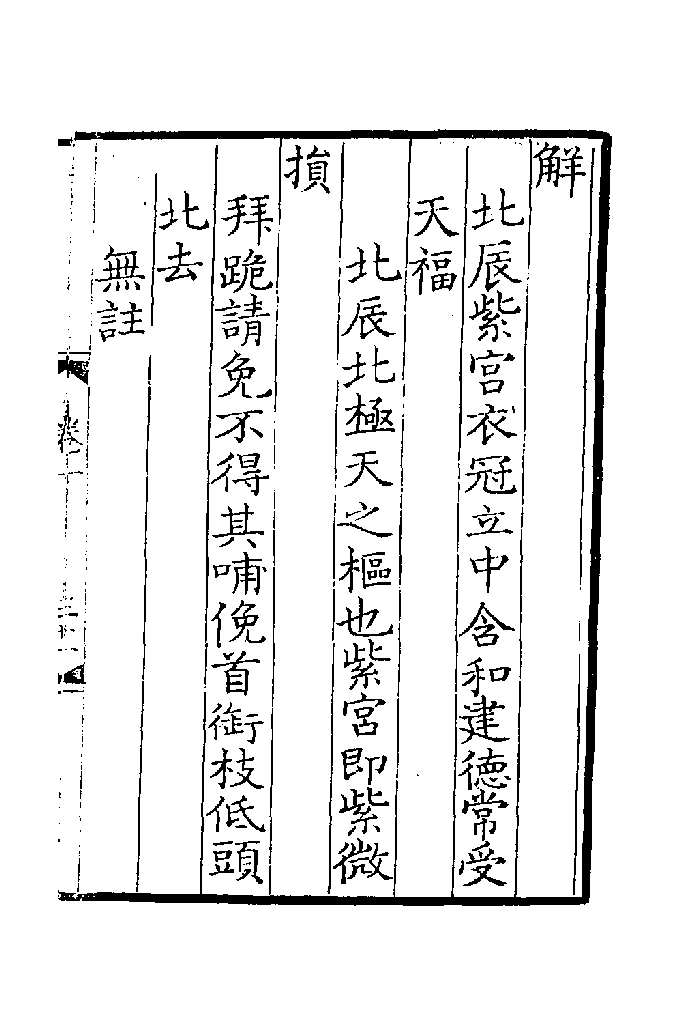 解
北辰紫宮衣冠立中含和建德常受
天福
北辰北極天之樞也紫宮即紫微
損
拜跪請免不得其哺俛首銜枝低頭
北去
無註